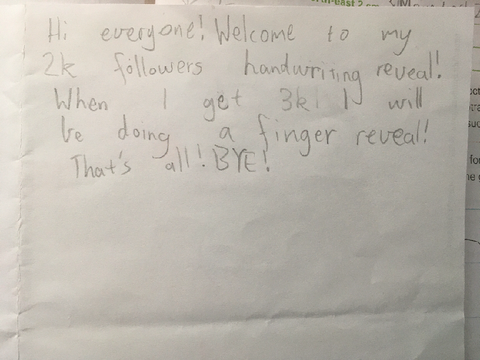 Hi everyone! Welcome to my
2k followers handwriting reveal!
When I get 3k! I will
be doing a finger reveal!
That's all! BYE!